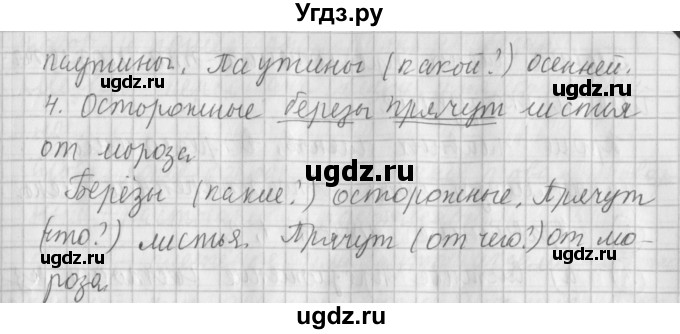 Угдз.ру
паутины. Паутины (какой?) осенней.
4. Осторожные березы прячут листья
от мороза
Берёзы (какие?) осторожные. Прячут
(что?) листья. Прячут (от чего?) от мо-
роза.
ugdz.ru ugdz.ru
ugdz.ru ugdz.ru
ugdz.ru
ugdz.ru ugdz.ru
ugdz.ru ugdz.ru